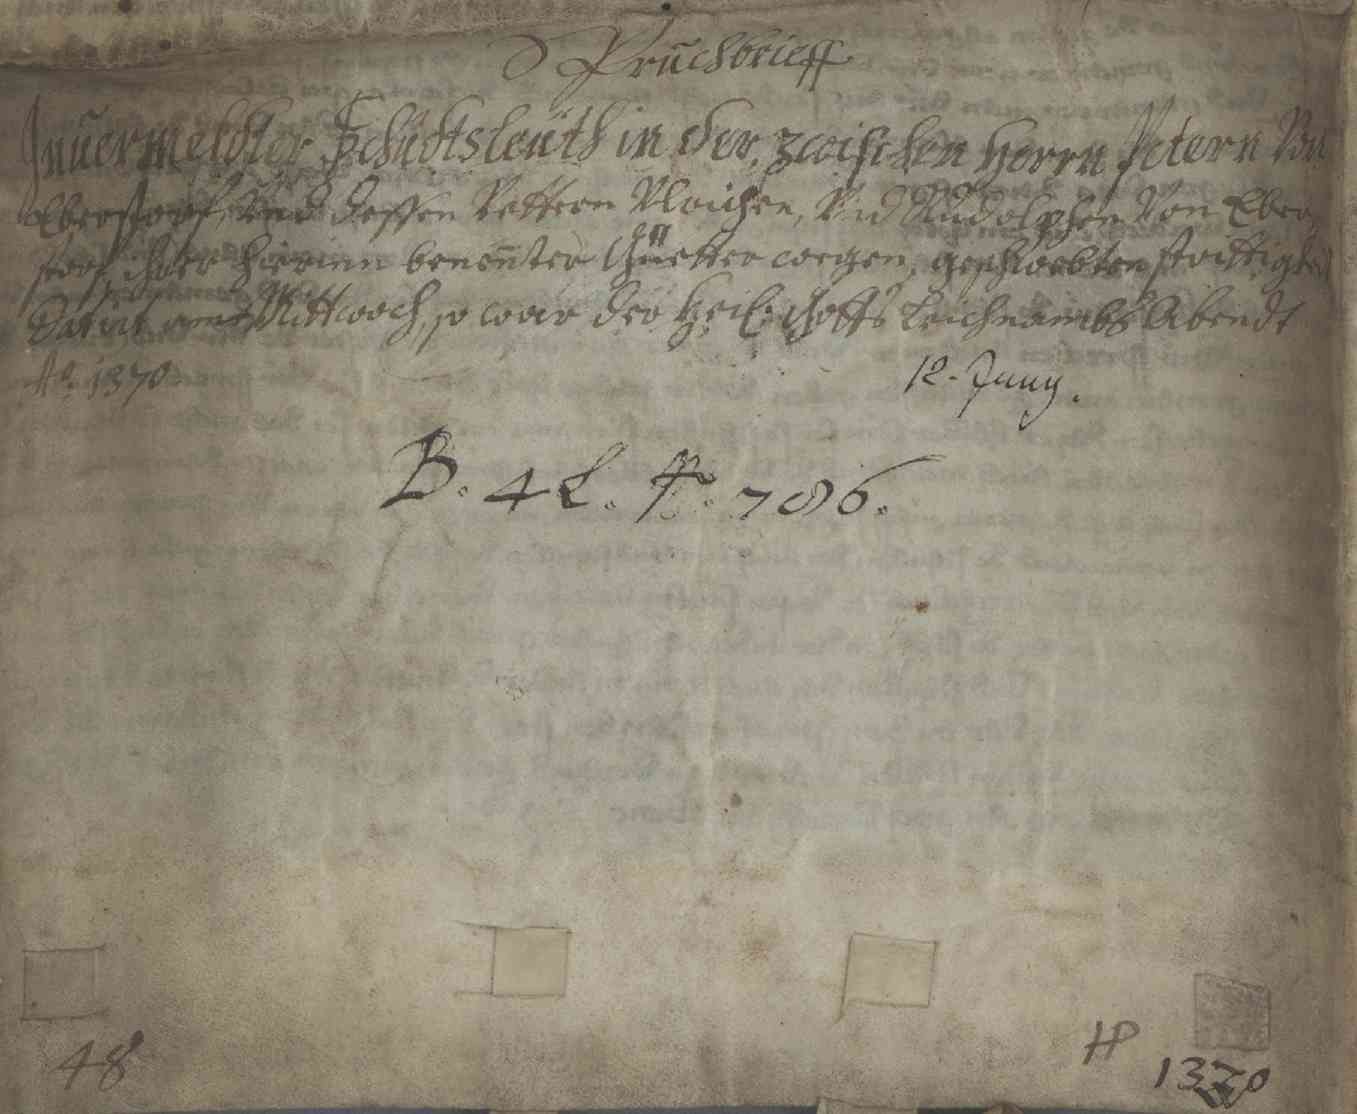 Spruchbrieff
Inuermeldter Schidtsleüth in der, zwischen Herrn Petern Von
Eberstorf, Vnd dessen Vettern Vlrichen, Vnd Rudolphen Von Ebers
torf, ihrer hierinn benenter Güetter wegen, geschwebten strittigkeit
Datum am Mittwoch, so war der Heil: Gotts Leichnambs Abendt
Ao. 1370 12. Juny.
B. 4 L. N. 786.
48
H
1370